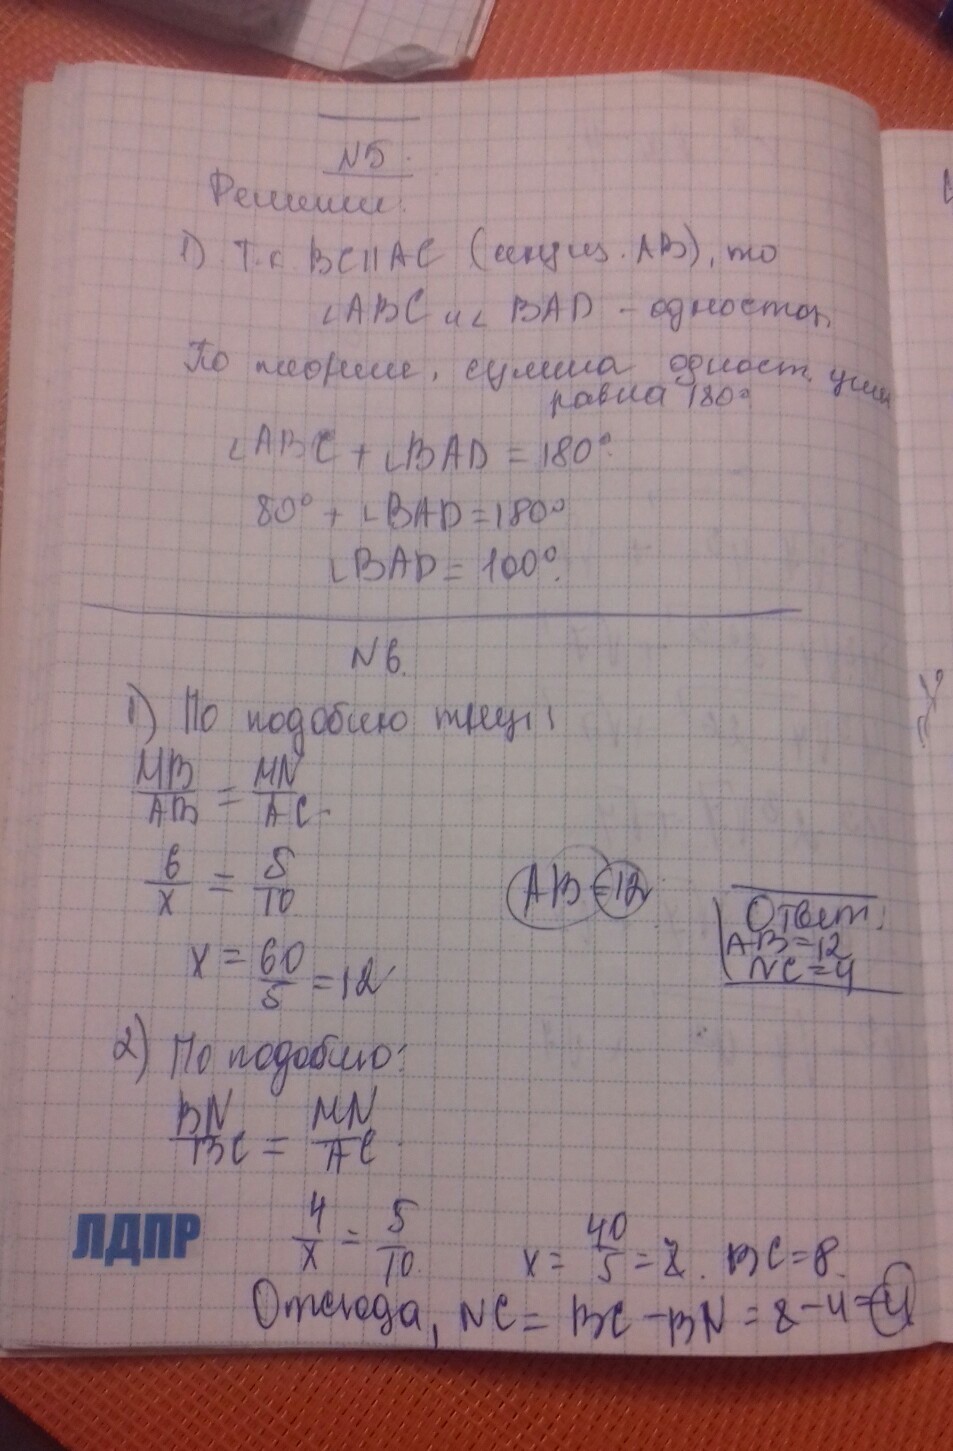 N5.
Решение.
1) Т.к BC||AC (секущ. AB), то
∠ABC и ∠BAD - одностор.
По теореме, сумма одност. углов
равна 180°
∠ABC + ∠BAD = 180°.
80° + ∠BAD = 180°
∠BAD = 100°.
N6.
1) По подобию треуг:
MB/AB = MN/AC.
6/x = 5/10
AB = 12
x = 60/5 = 12
Ответ:
AB = 12
NC = 4
2) По подобию:
BN/BC = MN/AC
ЛДПР
4/x = 5/10. x = 40/5 = 8. BC = 8.
Отсюда, NC = BC - BN = 8 - 4 = 4